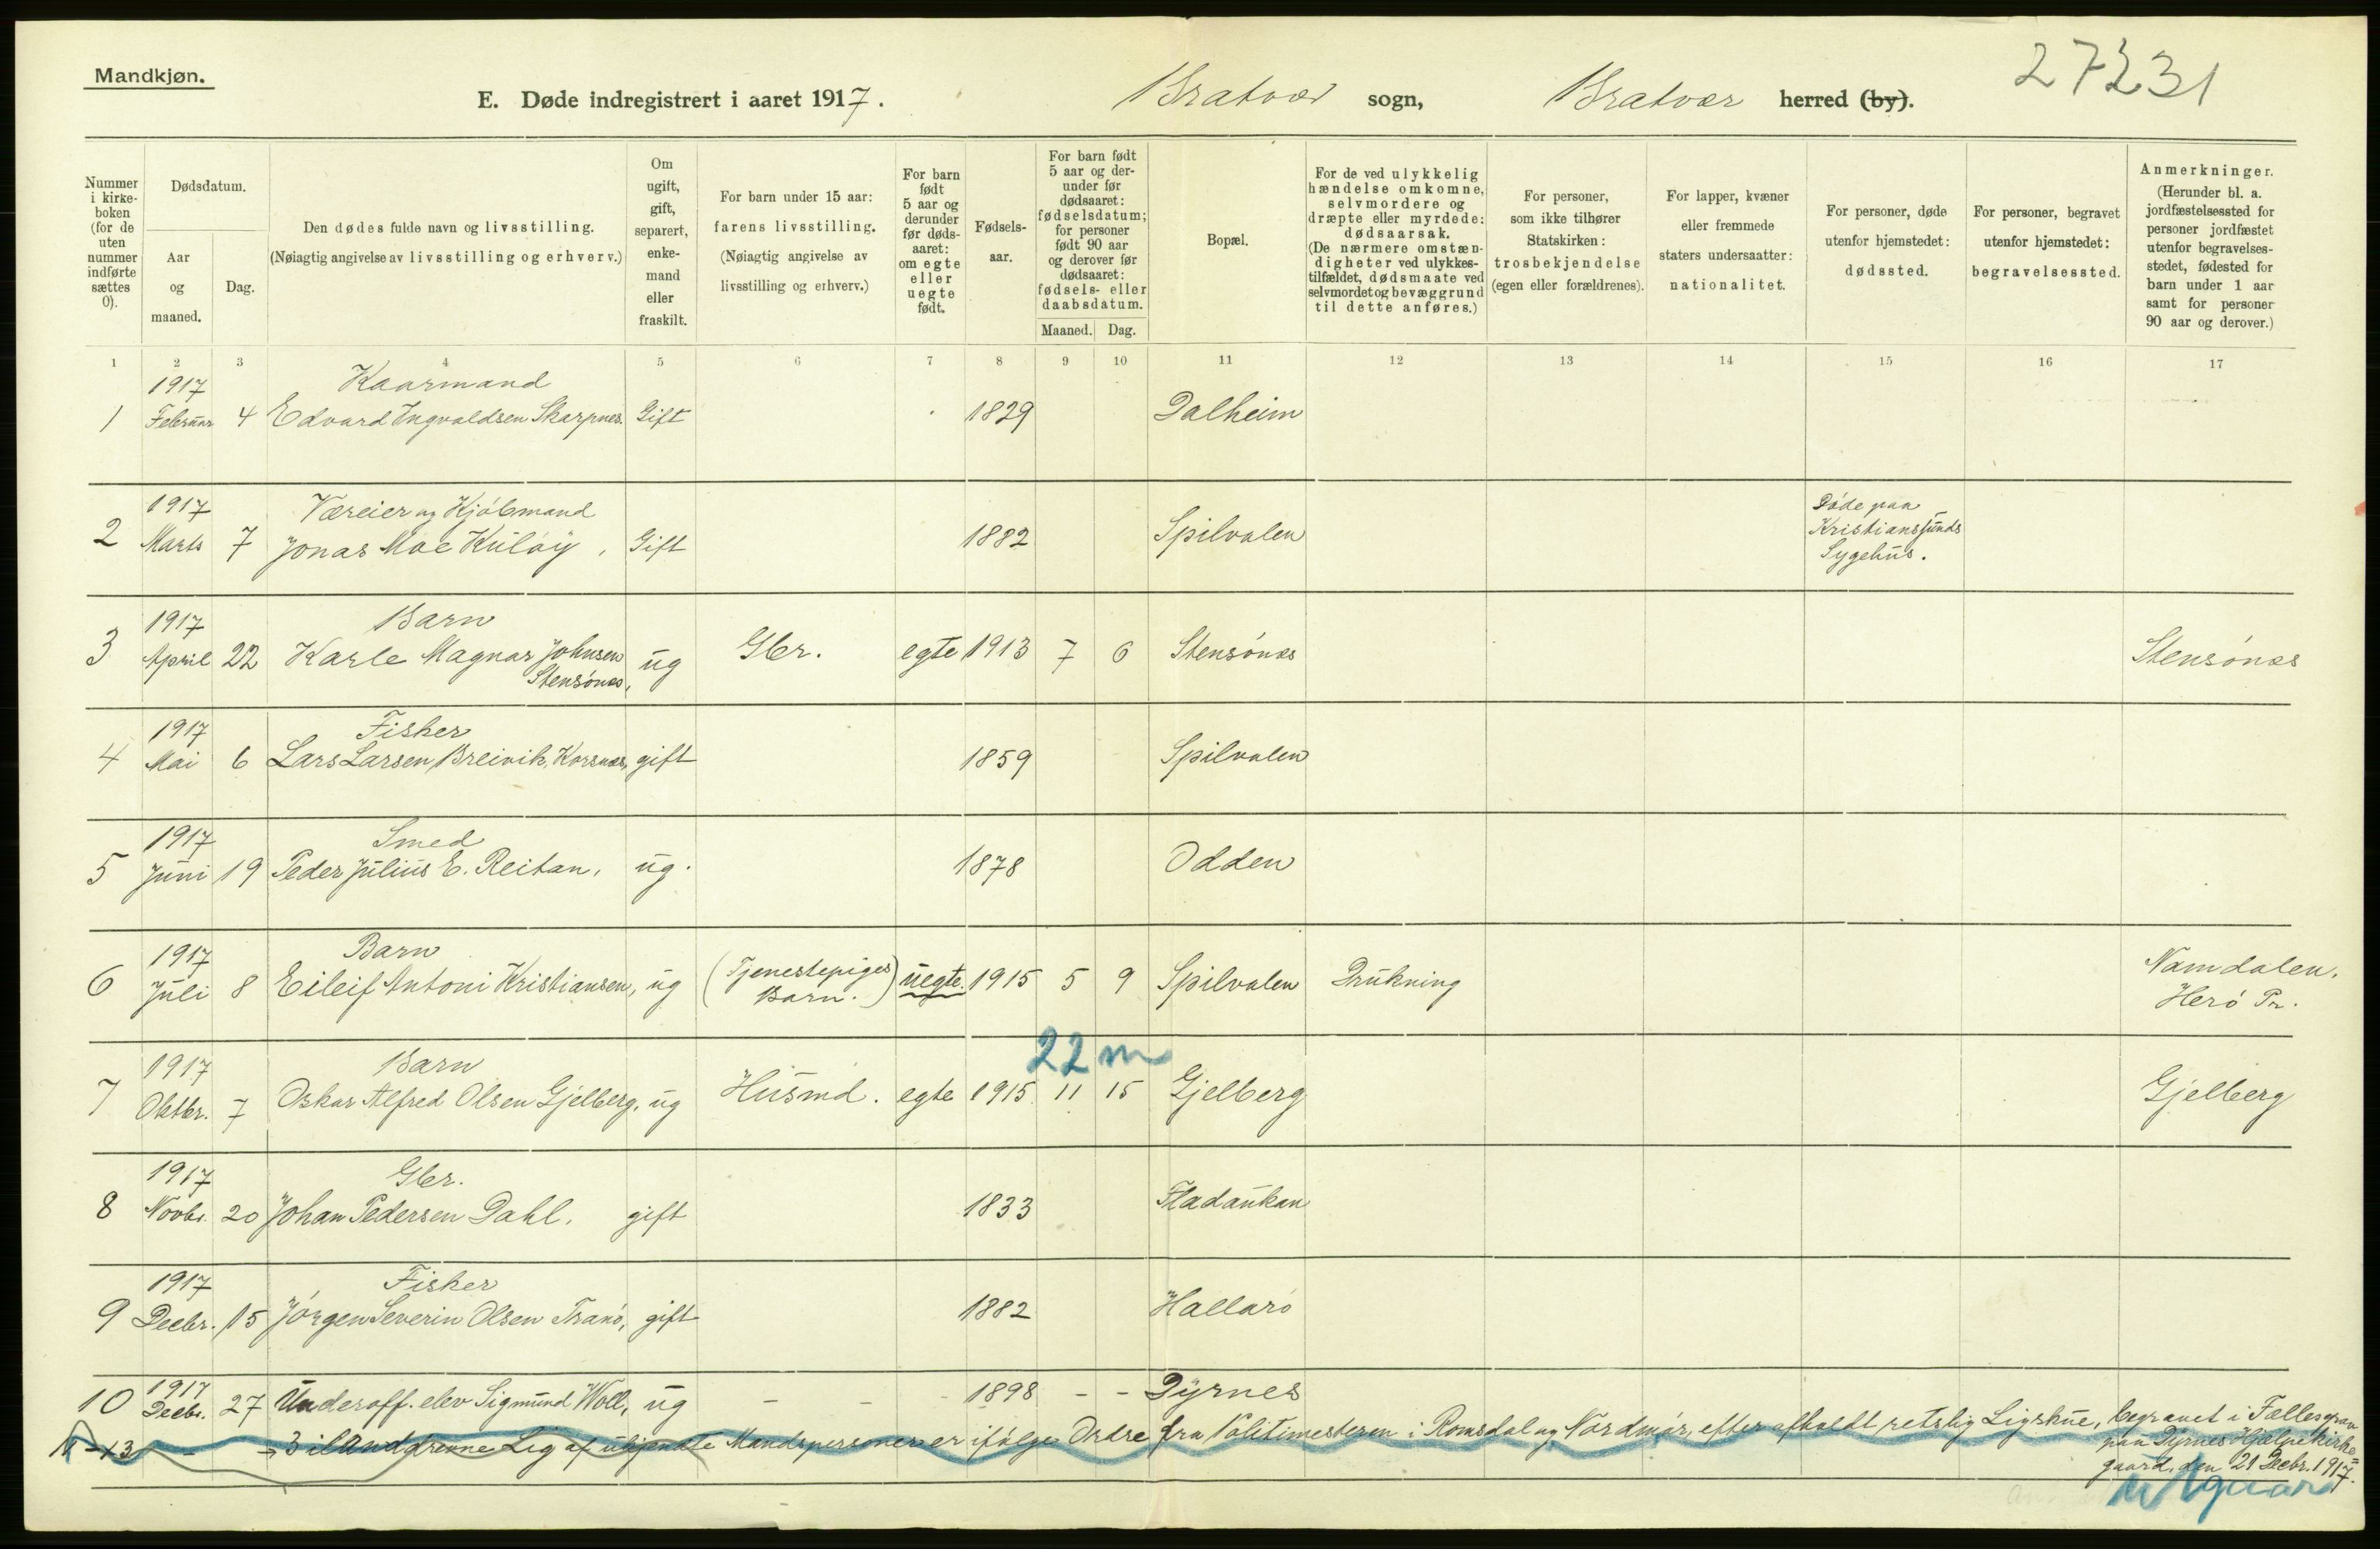 Mandkjøn.
27231
E. Døde indregistrert i aaret 1917. Bratvær sogn, Bratvær herred (by).
Nummer i kirkeboken (for de uten nummer indførte sættes 0).
Dødsdatum.
Aar og maaned.
Dag.
Den dødes fulde navn og livsstilling.
(Nøiagtig angivelse av livsstilling og erhverv.)
Om ugift, gift, separert, enkemand eller fraskilt.
For barn under 15 aar: farens livsstilling.
(Nøiagtig angivelse av livsstilling og erhverv.)
For barn født 5 aar og derunder før dødsaaret: om egte eller uegte født.
Fødselsaar.
For barn født 5 aar og derunder før dødsaaret: fødselsdatum; for personer født 90 aar og derover før dødsaaret: fødsels- eller daabsdatum.
Maaned. Dag.
Bopæl.
For de ved ulykkelig hændelse omkomne, selvmordere og dræpte eller myrdede: dødsaarsak.
(De nærmere omstændigheter ved ulykkestilfældet, dødsmaate ved selvmordet og bevæggrund til dette anføres.)
For personer, som ikke tilhører Statskirken: trosbekjendelse (egen eller forældrenes).
For lapper, kvæner eller fremmede staters undersaatter: nationalitet.
For personer, døde utenfor hjemstedet: dødssted.
For personer, begravet utenfor hjemstedet: begravelsessted.
Anmerkninger.
(Herunder bl. a. jordfæstelsessted for personer jordfæstet utenfor begravelsesstedet, fødested for barn under 1 aar samt for personer 90 aar og derover.)
1 2 3 4 5 6 7 8 9 10 11 12 13 14 15 16 17
1917 Kaarmand
1 Februar 4 Edvard Ingvaldsen Skarpnes. Gift 1829 Dalheim
1917 Væreier og Kjöbmand
2 Marts 7 Jonas Moe Kulöy, Gift 1882 Spilvalen
Döde paa
Kristianssunds
Sygehus.
1917 Barn
3 April 22 Karle Magnar Johnsen ug Gbr. egte 1913 7 6 Stensönæs Stensönæs
Stensönæs,
1917 Fisker
4 Mai 6 Lars Larsen Breivik, Korsnæs, gift 1859 Spilvalen
1917 Smed
5 Juni 19 Peder Julius E. Reitan, ug. 1878 Odden
1917 Barn
6 Juli 8 Eileif Antoni Kristiansen, ug (Tjenestepiges Barn.) uegte. 1915 5 9 Spilvalen Drukning Namdalen,
Herö Pr.
22 m
1917 Barn
7 Oktbr. 7 Oskar Alfred Olsen Gjelberg, ug Husmd. egte 1915 11 15 Gjelberg Gjelberg
1917 Gbr.
8 Novbr. 20 Johan Pedersen Dahl, gift 1833 Fladaukan
1917 Fisker
9 Decbr. 15 Jörgen Severin Olsen Tranö, gift 1882 Hallarö
1917
10 Decbr. 27 Underoff. elev Sigmund Woll, ug - - - 1898 - - Dyrnes
11-13 - - 3 ilanddrevne Lig af ukjendte Mandspersoner er ifölge Ordre fra Politimesteren i Romsdal og Nordmör, efter afholdt retslig Ligskue, begravet i Fællesgrav
paa Dyrnes Hjælpekirke=
gaard, den 21 Decbr. 1917.